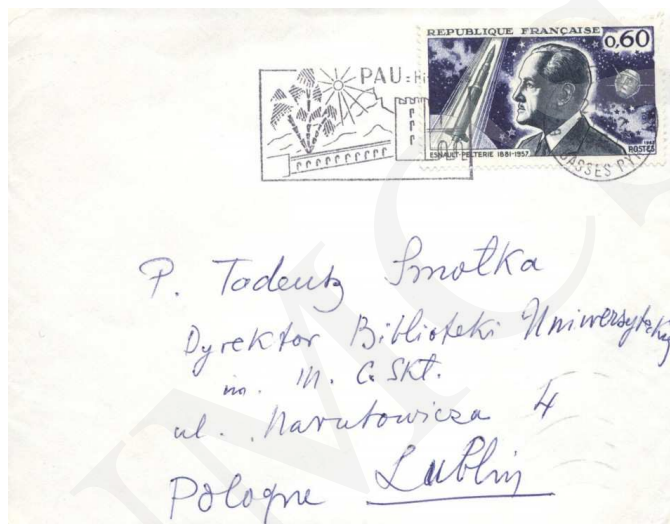 REPUBLIQUE FRANÇAISE
0,60
PAU
ESNAULT-PELTERIE 1881-1957
POSTES
BASSES PY
P. Tadeusz Smołka
Dyrektor Biblioteki Uniwersyteckiej
im. M. C. Skł.
ul. Narutowicza 4
Pologne Lublin